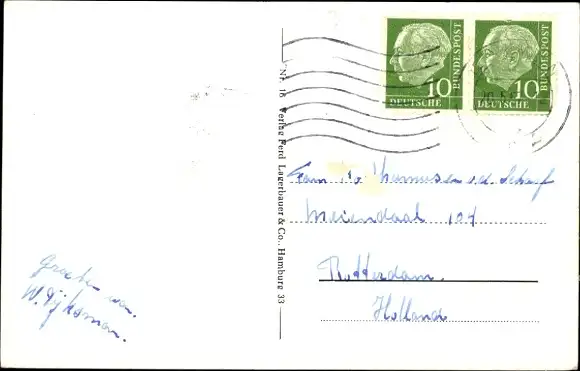 10 DEUTSCHE BUNDESPOST
10 DEUTSCHE BUNDESPOST
Nr. 16 Verlag Ferd. Lagerbauer & Co., Hamburg 33
Fam
Meiendaal 104
Rotterdam.
Holland
Groeten van.
W. Dijksman.